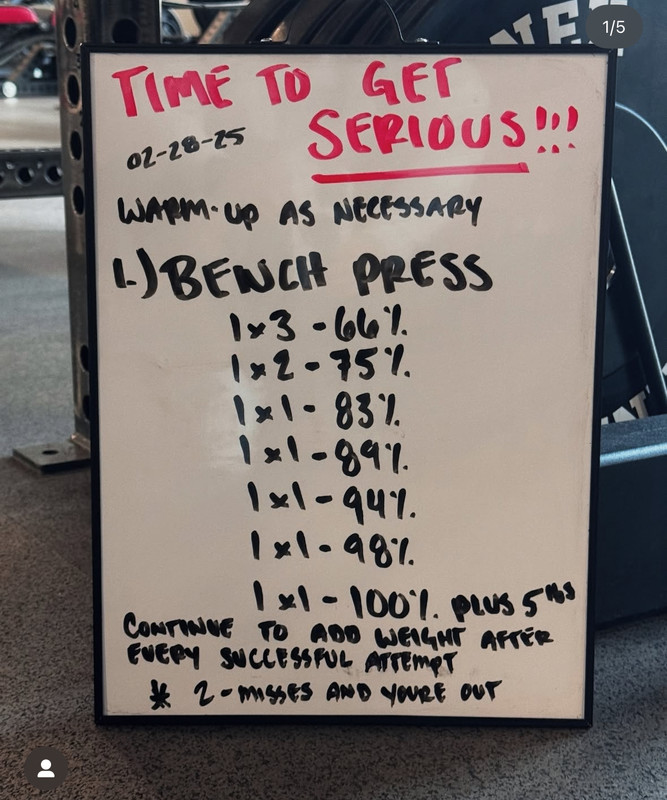 1/5
NER
TIME TO GET
SERIOUS!!!
02-28-25
WARM-UP AS NECESSARY
1.) BENCH PRESS
1x3 - 66%.
1x2 - 75%.
1x1 - 83%.
1x1 - 89%.
1x1 - 94%.
1x1 - 98%.
1x1 - 100%. PLUS 5 lbs
CONTINUE TO ADD WEIGHT AFTER
EVERY SUCCESSFUL ATTEMPT
* 2 - MISSES AND YOURE OUT